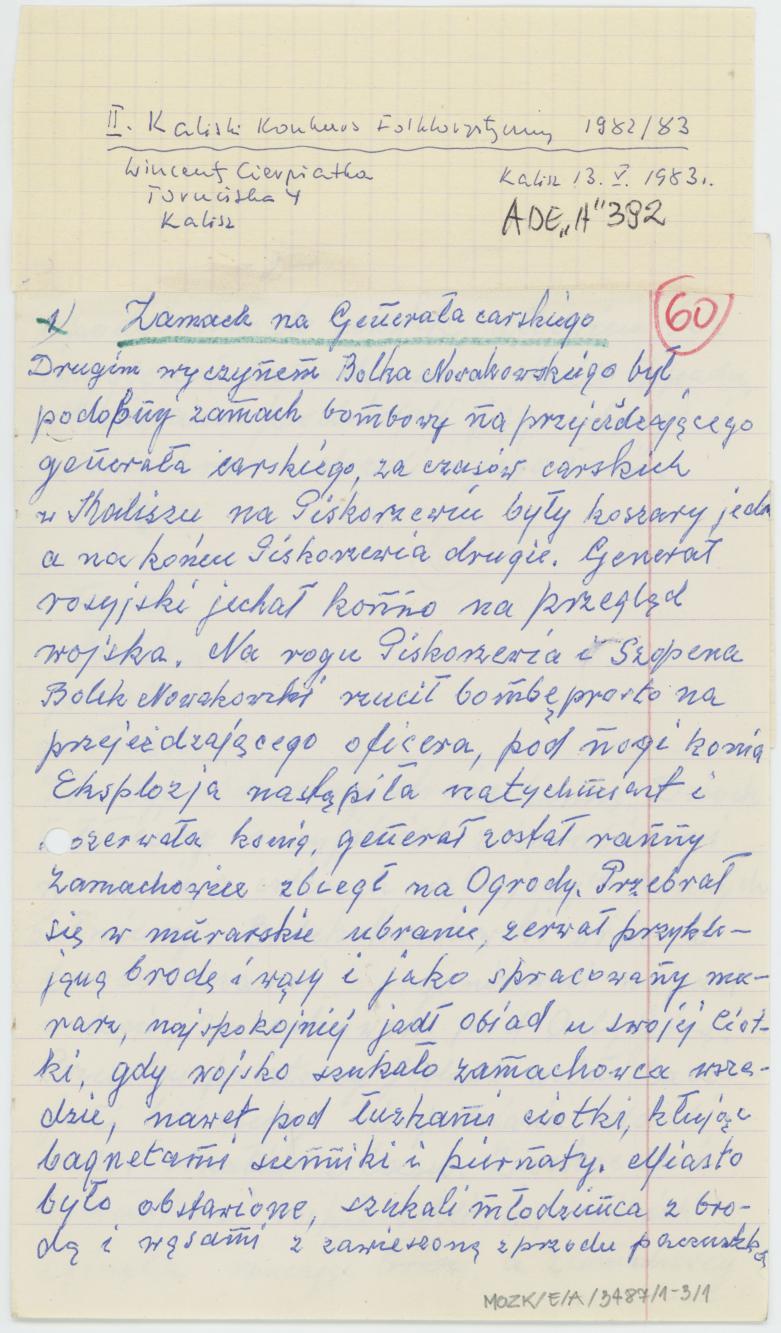 II. Kaliski Konkurs Folklorystyczny 1982/83
Wincenty Cierpiatka
Toruńska 4
Kalisz
Kalisz 13. V. 1983r.
ADE „A" 392
1) Zamach na Generała carskiego
60
Drugim wyczynem Bolka Nowakowskiego był
podobny zamach bombowy na przejeżdzającego
generała carskiego, za czasów carskich
w Kaliszu na Piskorzewiu były koszary jedn
a na końcu Piskorzewia drugie. Generał
rosyjski jechał konno na przegląd
wojska. Na rogu Piskorzewia i Szopena
Bolek Nowakowski rzucił bombę prosto na
przejeżdzającego oficera, pod nogi konia
Eksplozja nastąpiła natychmiast i
rozerwała konia, generał został ranny
Zamachowiec zbiegł na Ogrody. Przebrał
się w murarskie ubranie, zerwał przykle-
janą brodę i wąsy i jako spracowany mu-
rarz, najspokojniej jadł obiad u swojej Ciot-
ki, gdy wojsko szukało zamachowca wszę-
dzie, nawet pod łużkami ciotki, kłując
bagnetami sienniki i piernaty. Miasto
było obstawione, szukali młodzieńca z bro-
dą i wąsami z zawieszoną z przodu paczuszką
MOZK/E/A/3487/1-3/1